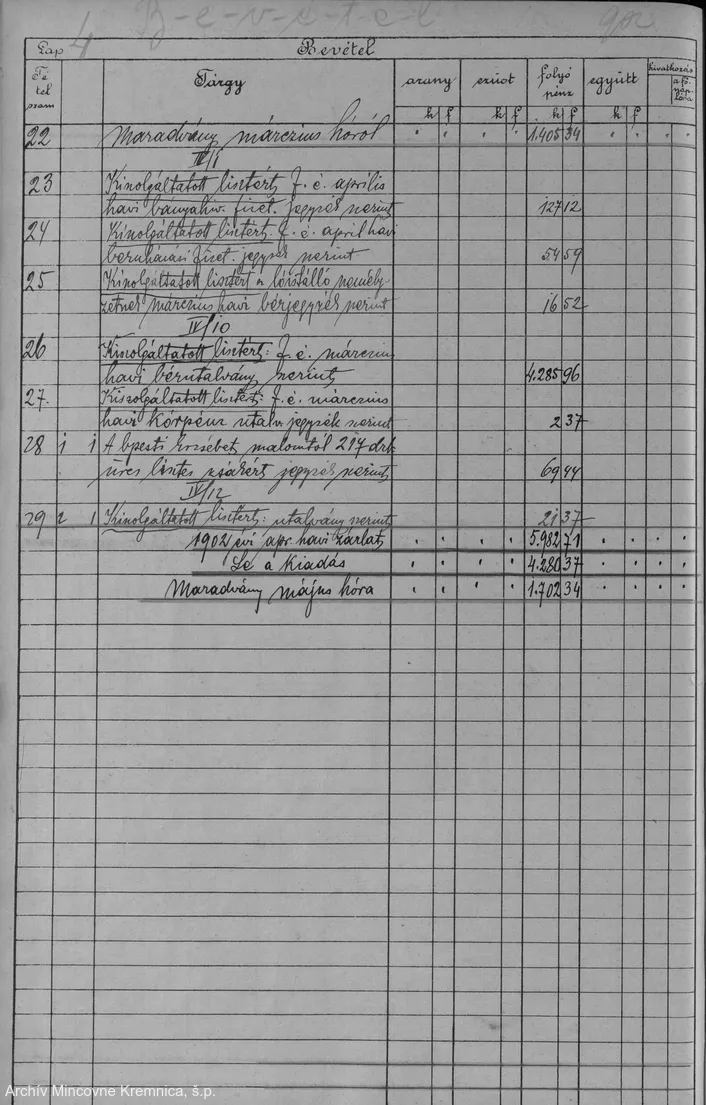 4 B-e-v-é-t-e-l 902
Lap Bevétel
Té tel szam Tárgy arany ezüst folyó pénz együtt hivatkozás a fő naplóra
k f k f k f k f
22 Maradvány márczius hóról 1.405 34
IV/1
23 Kiszolgáltatott lisztért f. é. április
havi bányahiv. fizet. jegyzék szerint 127 12
24 Kiszolgáltatott lisztért f. é. april havi
beruházási fizet. jegyzék szerint 54 59
25 Kiszolgáltatott lisztért a személy-
zetnek márczius havi bérjegyzék szerint 16 52
IV/10
26 Kiszolgáltatott lisztért: f. é. márczius
havi bérutalvány szerint 4.285 96
27. Kiszolgáltatott lisztért: f. é. márczius
havi kórpénz utalv. jegyzék szerint 2 37
28 1 1 A bpesti Erzsébet malomtól 217 drb
üres lisztes zsákért jegyzék szerint 69 44
IV/12
29 2 1 Kiszolgáltatott lisztért: utalvány szerint 21 37
1902 évi apr. havi zárlat 5.982 71
Le a Kiadás 4.280 37
Maradvány május hóra 1.702 34
Archív Mincovne Kremnica, š.p.